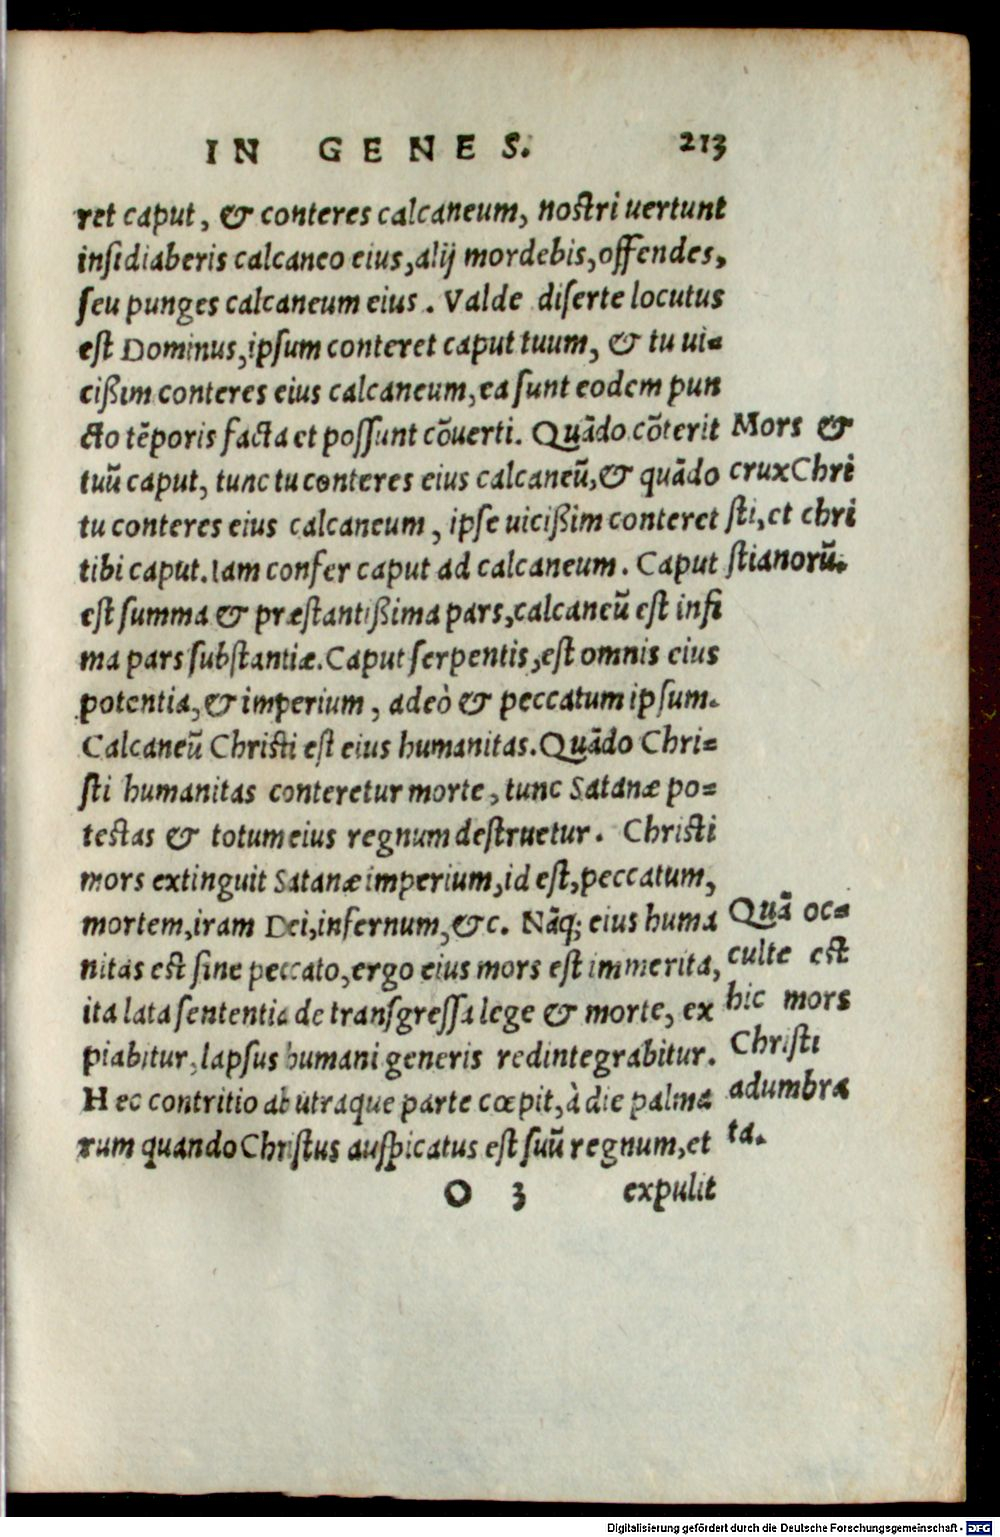 IN GENES. 213
ret caput, & conteres calcaneum, nostri uertunt
insidiaberis calcaneo eius, alij mordebis, offendes,
seu punges calcaneum eius. Valde diserte locutus
est Dominus, ipsum conteret caput tuum, & tu ui-
cißim conteres eius calcaneum, ea sunt eodem pun
cto tẽporis facta et possunt cõuerti. Quãdo cõterit
tuũ caput, tunc tu conteres eius calcaneũ, & quãdo
tu conteres eius calcaneum, ipse uicißim conteret
tibi caput. Iam confer caput ad calcaneum. Caput
est summa & præstantißima pars, calcaneũ est infi
ma pars substantiæ. Caput serpentis, est omnis eius
potentia, & imperium, adeò & peccatum ipsum.
Calcaneũ Christi est eius humanitas. Quãdo Chri-
sti humanitas conteretur morte, tunc Satanæ po-
testas & totum eius regnum destruetur. Christi
mors extinguit Satanæ imperium, id est, peccatum,
mortem, iram Dei, infernum, &c. Nãq; eius huma
nitas est sine peccato, ergo eius mors est immerita,
ita lata sententia de transgressa lege & morte, ex
piabitur, lapsus humani generis redintegrabitur.
Hec contritio ab utraque parte cœpit, à die palma
rum quando Christus auspicatus est suũ regnum, et
O 3 expulit
Mors &
crux Chri
sti, et chri
stianorũ.
Quã oc-
culte est
hic mors
Christi
adumbra
ta.
Digitalisierung gefördert durch die Deutsche Forschungsgemeinschaft - DFG